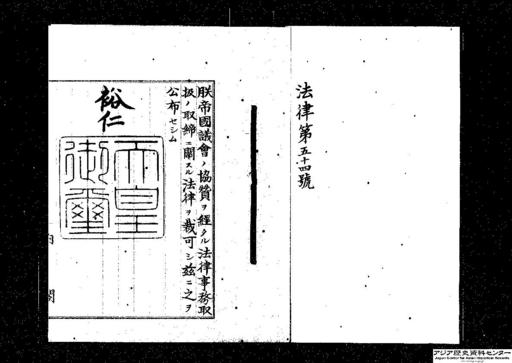 法律第五十四號
朕帝國議會ノ協贊ヲ經タル法律事務取
扱ノ取締ニ關スル法律ヲ裁可シ茲ニ之ヲ
公布セシム
裕仁
天皇
御璽
内閣
アジア歴史資料センター
Japan Center for Asian Historical Records